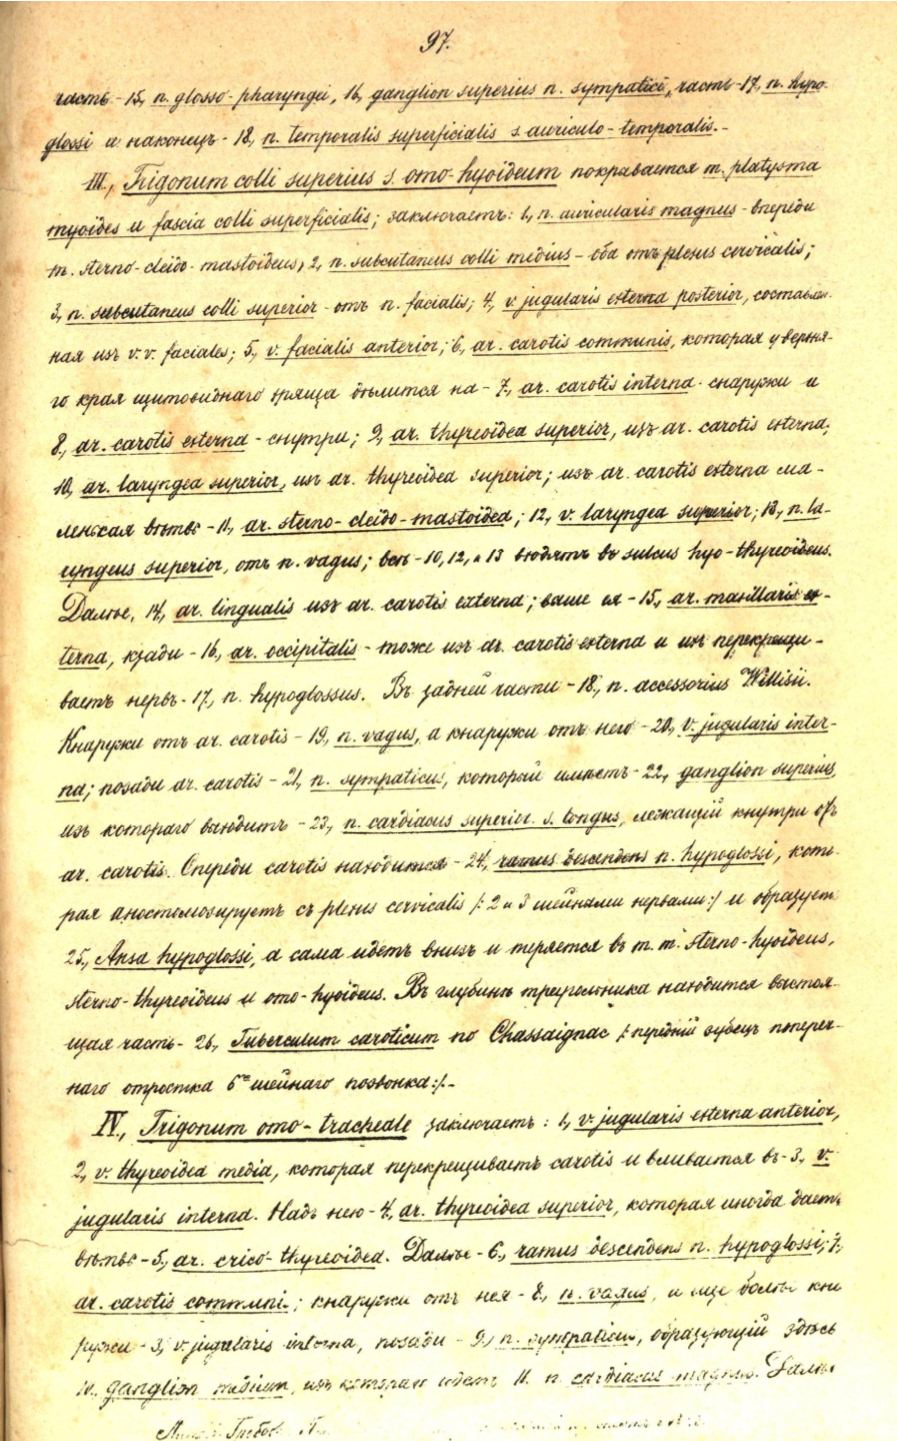 97.
часть - 15, n. glosso-pharyngei, 16, ganglion superius n. sympatici, часть - 17, n. hypo-
glossi и наконецъ - 18, n. temporalis superficialis s. auriculo-temporalis.-
III., Trigonum colli superius s. omo-hyoideum покрывается m. platysma
myoides и fascia colli superficialis; заключаетъ: 1, n. auricularis magnus - впереди
m. sterno-cleido-mastoideus, 2, n. subcutaneus colli medius - оба отъ plexus cervicalis;
3, n. subcutaneus colli superior - отъ n. facialis; 4, v. jugularis externa posterior, составлен-
ная изъ v.v. faciales; 5, v. facialis anterior; 6, ar. carotis communis, которая у верхня-
го края щитовиднаго хряща дѣлится на - 7, ar. carotis interna - снаружи и
8, ar. carotis externa - снутри; 9, ar. thyreoidea superior, изъ ar. carotis externa;
10, ar. laryngea superior, изъ ar. thyreoidea superior; изъ ar. carotis externa ма-
ленькая вѣтвь - 11, ar. sterno-cleido-mastoidea; 12, v. laryngea superior; 13, n. la-
ryngeus superior, отъ n. vagus; всѣ - 10, 12, и 13 входятъ въ sulcus hyo-thyreoideus.
Далѣе, 14, ar. lingualis изъ ar. carotis externa; выше ея - 15, ar. maxillaris ex-
terna, кзади - 16, ar. occipitalis - тоже изъ ar. carotis externa и ихъ перекрещи-
ваетъ нервъ - 17, n. hypoglossus. Въ задней части - 18, n. accessorius Willisii.
Кнаружи отъ ar. carotis - 19, n. vagus, а кнаружи отъ него - 20, v. jugularis inter-
na; позади ar. carotis - 21, n. sympaticus, который имѣетъ - 22, ganglion superius,
изъ котораго выходитъ - 23, n. cardiacus superior s. longus, лежащій кнутри отъ
ar. carotis. Спереди carotis находится - 24, ramus descendens n. hypoglossi, кото-
рая аностомозируетъ съ plexus cervicalis /: 2 и 3 шейными нервами :/ и образуетъ
25, Ansa hypoglossi, а сама идетъ внизъ и теряется въ m.m. sterno-hyoideus,
sterno-thyreoideus и omo-hyoideus. Въ глубинѣ треугольника находится выстоя-
щая часть - 26, Tuberculum caroticum по Chassaignac /: передній зубецъ попереч-
наго отростка 6го шейнаго позвонка :/.-
IV., Trigonum omo-tracheale заключаетъ: 1, v. jugularis externa anterior,
2, v. thyreoidea media, которая перекрещиваетъ carotis и вливается въ - 3, v.
jugularis interna. Надъ нею - 4, ar. thyreoidea superior, которая иногда даетъ
вѣтвь - 5, ar. crico-thyreoidea. Далѣе - 6, ramus descendens n. hypoglossi; 7,
ar. carotis communi.; кнаружи отъ нея - 8, n. vagus, и еще болѣе кна
ружи - 3, v. jugularis interna, позади - 9, n. sympaticus, образующій здѣсь
10, ganglion medium, изъ котораго идетъ 11. n. cardiacus magnus. Далѣе